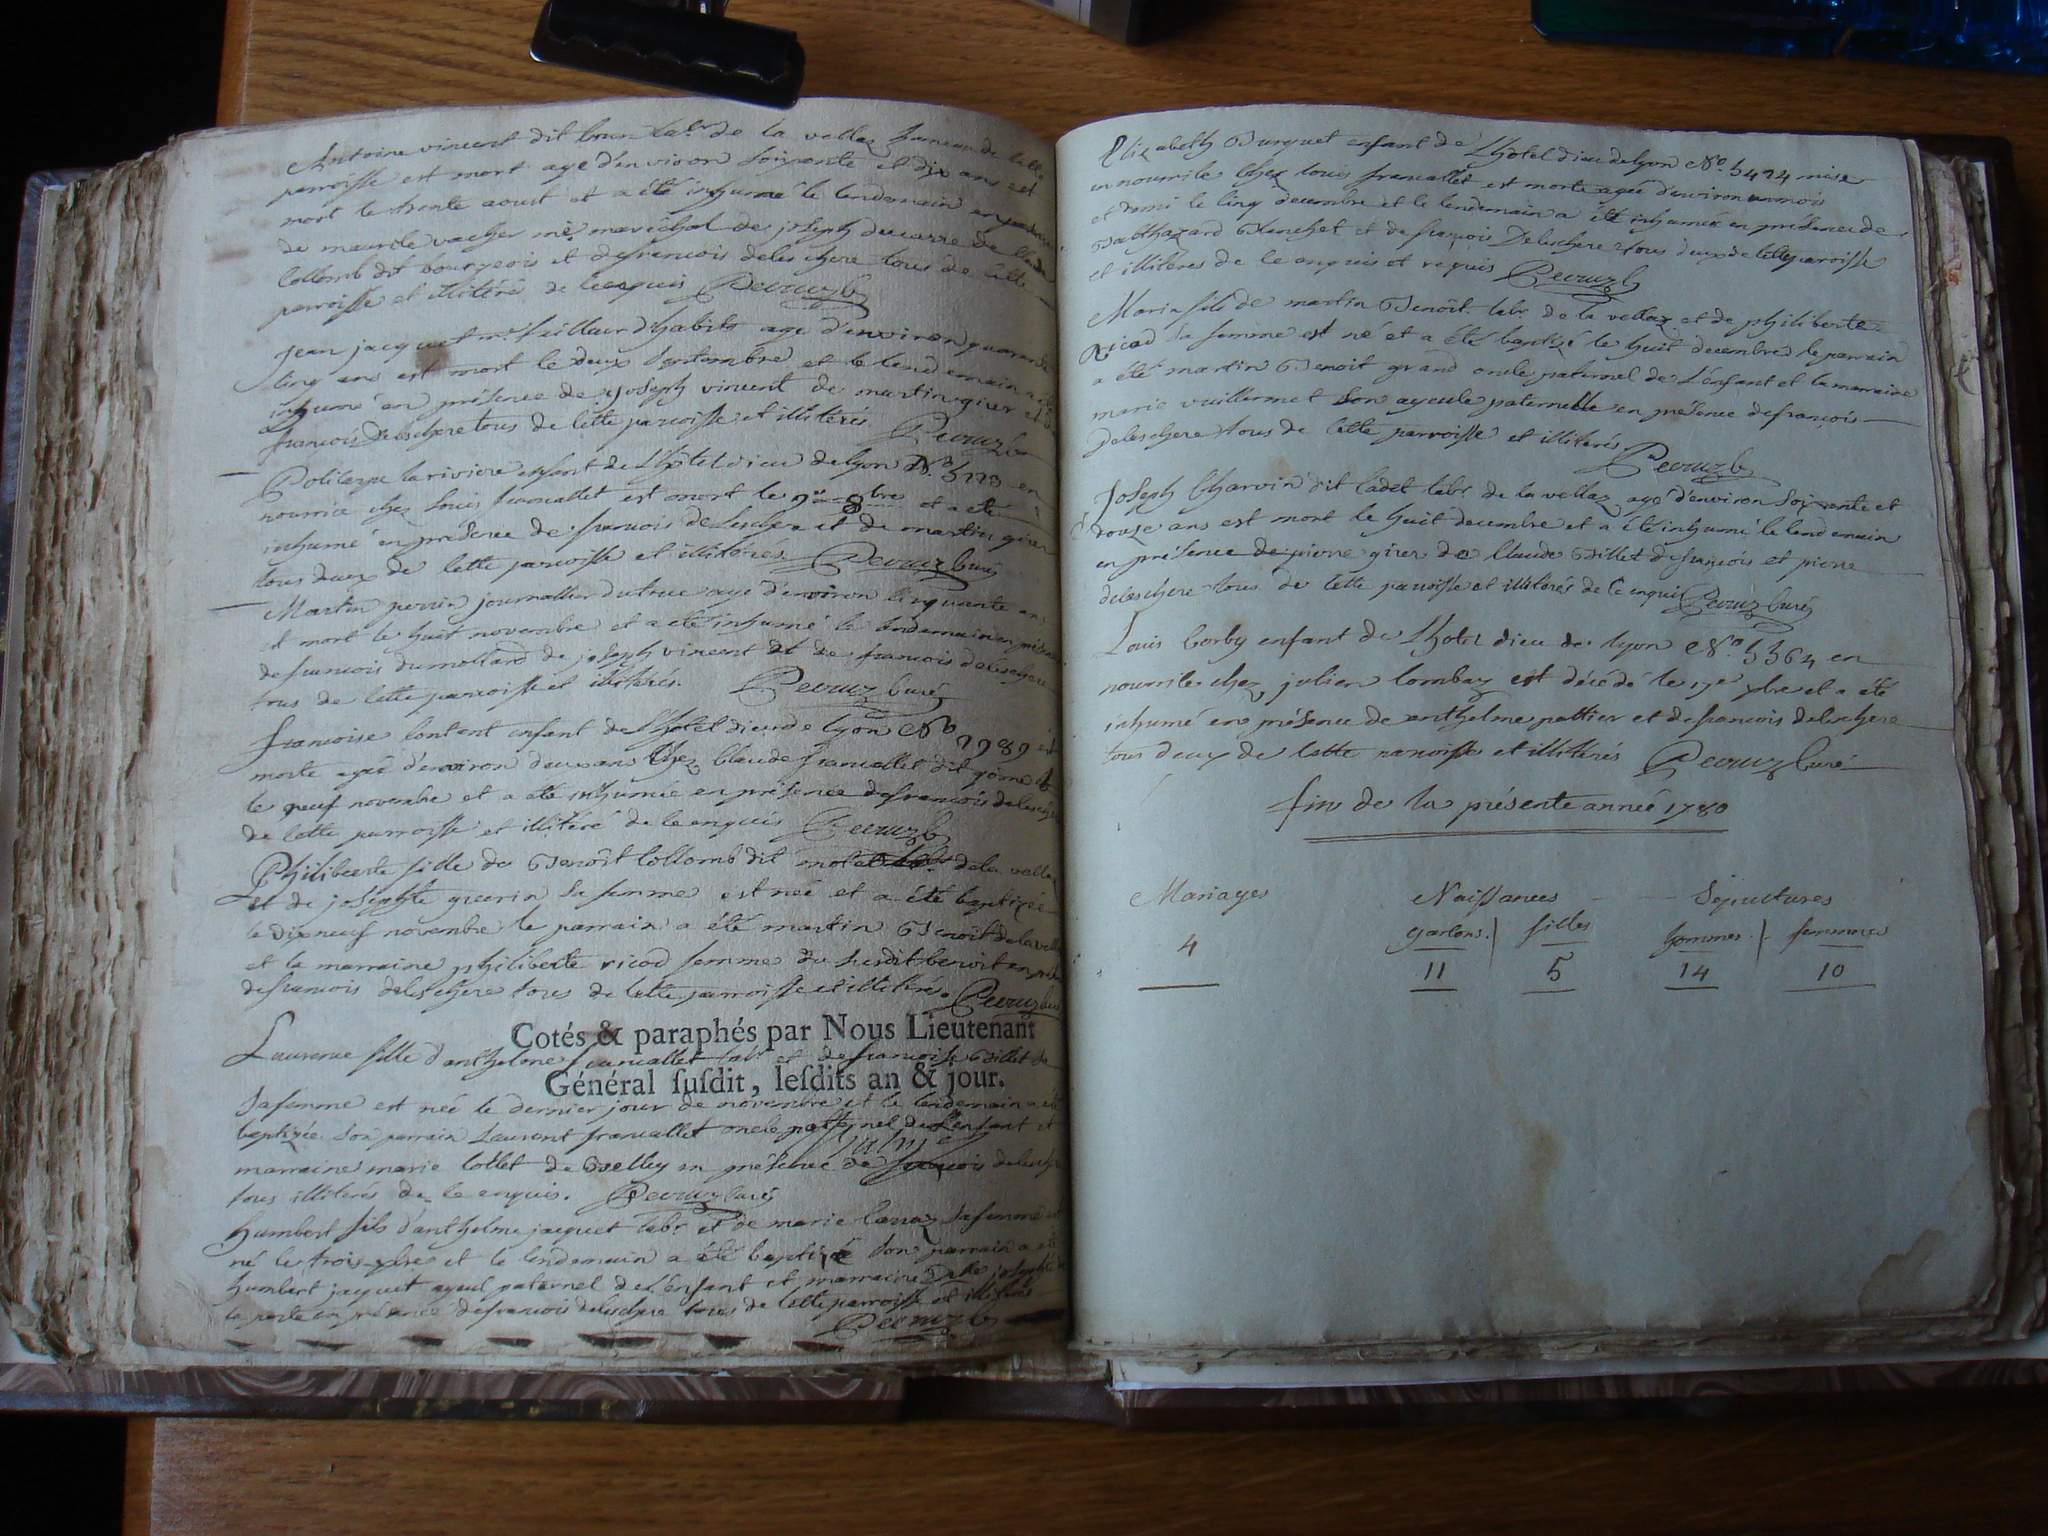 Antoine vincent dit lab.r de la vellaz hameau de cette
parroisse est mort agé d'environ soixante et dix ans est
mort le trente aoust et a été inhumé le lendemain en présence
de maurile vacher me. marêchal de joseph ducarre de Claude
Collomb dit bourgeois et de francois deleschere tous de cette
parroisse et illitéré de ce enquis Pecruz c
Jean jacquet me. tailleur d'habits agé d'environ quarante
cinq ans est mort le deux septembre et le lendemain a été
inhumé en présence de joseph vincent de martin girer et de
francois Deleschere tous de cette parroisse et illitérés Pecruz c
Policarpe lariviere enfant de L'hôtel dieu de lyon N.o en
nourrice chez louis francallet est mort le 8bre et a été
inhumé en présence de francois deleschere et de martin girer
tous deux de cette parroisse et illitérés Pecruz curé
Martin perrin journallier du truc agé d'environ cinquante ans
est mort le huit novembre et a été inhumé le lendemain en présence
de francois dumollard de joseph vincent et de francois deleschere
tous de cette parroisse et illitérés. Pecruz curé
francoise content enfant de L'hotel dieu de lyon No est
morte agée d'environ deux ans chez Claude francallet dit
le neuf novembre et a été inhumée en présence de francois deleschere
de cette parroisse et illitéré de ce enquis Pecruz c
Philiberte fille de Benoît Collomb dit de la vellaz
et de josephte guerin sa femme est née et a été baptizée
le dix neuf novembre le parrain a été martin Benoît de la vellaz
et la marraine philiberte ricod femme du susdit benoit en présence
de francois deleschere tous de cette parroisse et illitérés. Pecruz curé
Cotés & paraphés par Nous Lieutenant
Laurence fille d'anthelme francallet lab.r et de francoise Billet sa
Général susdit, lesdits an & jour.
sa femme est née le dernier jour de novembre et le lendemain a été
baptizée son parrain Laurent francallet oncle paternel de L'enfant et
marraine marie Collet de Belley en présence de francois deleschere
tous illitérés de ce enquis. Pecruz curé
humbert fils d'anthelme jacquet lab.r et de marie sa femme est
né le trois xbre et le lendemain a été baptizé son parrain a été
humbert jacquet ayeul paternel de L'enfant et marraine Dlle josephte
la porte en présence de francois deleschere tous de cette parroisse et illitérés
Pecruz c
Elizabeth Burquet enfant de L'hôtel dieu de lyon No. 5424 mise
en nourrile chez louis francallet est morte agée d'environ un mois
et demi le cinq decembre et le lendemain a été inhumée en présence de
Balthazard Blanchet et de françois Deleschere tous deux de cette parroisse
et illiteres de ce enquis et requis Pecruz c
Marin fils de martin Benoît labr. de la vellaz et de philiberte
Ricod sa femme est né et a été baptizé le huit decembre le parrain
a été martin Benoit grand oncle paternel de L'enfant et la marraine
marie vuillermet son ayeule paternelle en présence de francois
Deleschere tous de cette parroisse et illiterés Pecruz c
Joseph Charvin dit Cadet labr. de la vellaz agé d'environ soixante et
douze ans est mort le huit decembre et a été inhumé le lendemain
en présence de pierre girer de Claude Billet de françois et pierre
deleschere tous de cette parroisse et illiterés de ce enquis Pecruz curé
Louis Corby enfant de L'hotel dieu de lyon No. 5364 en
nourrile chez julien Lombaz est décédé le 17e xbre et a été
inhumé en présence de anthelme pattier et de francois deleschere
tous deux de cette parroisse et illiterés Pecruz curé
fin de la présente année 1780
Mariages Naissances Sépultures
garcons. filles hommes. femmes
4 11 5 14 10